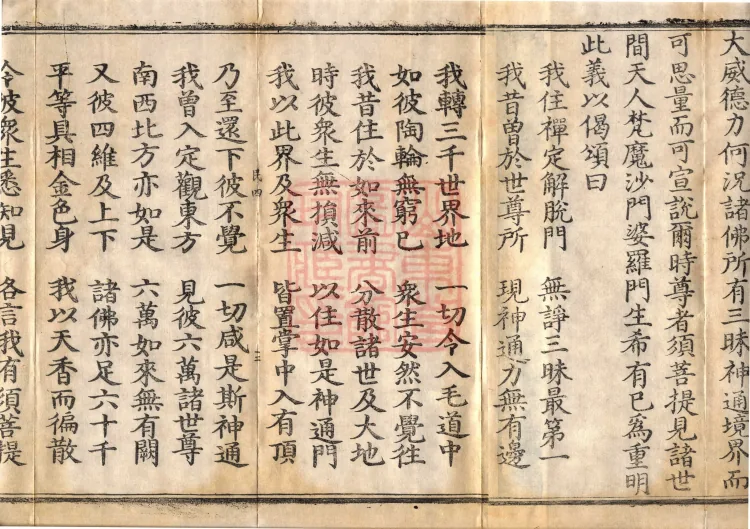 大威德力何況諸佛所有三昧神通境界而
可思量而可宣說爾時尊者須菩提見諸世
間天人梵魔沙門婆羅門生希有已為重明
此義以偈頌曰
我住禪定解脫門 無諍三昧最第一
我昔曾於世尊所 現神通力無有邊
我轉三千世界地 一切令入毛道中
如彼陶輪無窮已 衆生安然不覺徃
我昔住於如來前 分散諸世及大地
時彼衆生無損減 以住如是神通門
我以此界及衆生 皆置掌中入有頂
民四 十三
乃至還下彼不覺 一切咸是斯神通
我曾入定觀東方 見彼六萬諸世尊
南西北方亦如是 六萬如來無有闕
又彼四維及上下 諸佛亦足六十千
平等具相金色身 我以天香而徧散
令彼衆生悉知見 各言我有須菩提